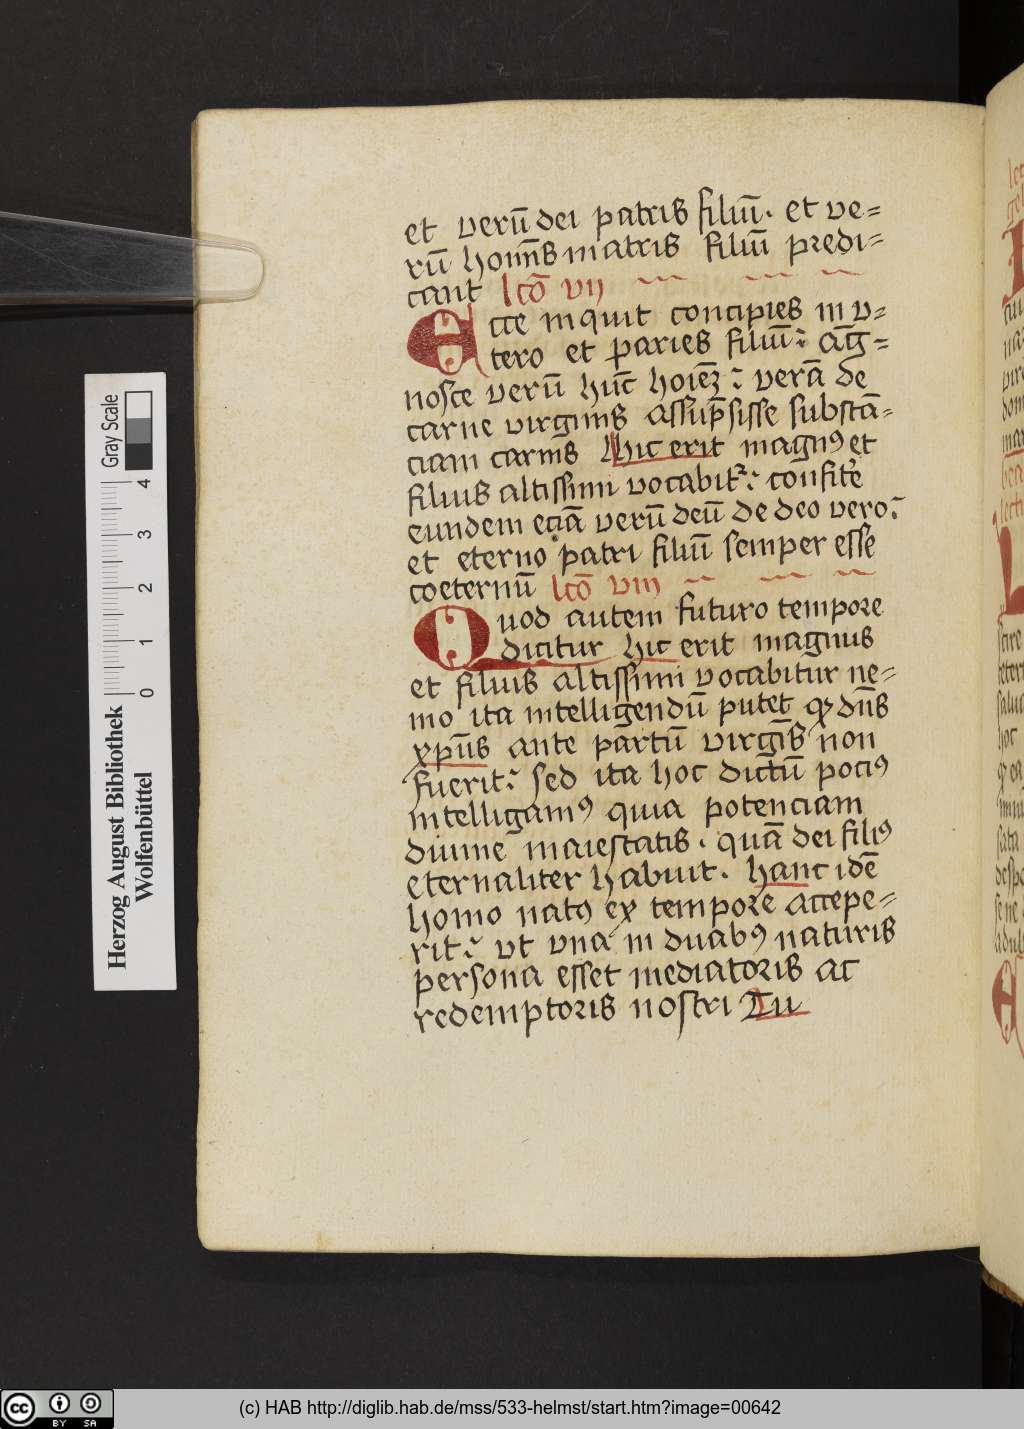 et verū dei patris filiū. et ve=
rū homīs matris filiū predi=
cant lcō vij
Ecce inquit concipies in v=
tero et paries filiū: ag̅=
nosce verū hūc hoiēʒ: verā de
carne virginis assūpsisse substā=
ciam carnis Hic erit magnꝰ et
filius altissimi vocabitᷣ: confitēe
eundem eciā verū deū de deo vero:
et eterno patri filiū semper esse
coeternū lcō viij
Quod autem futuro tempore
dicitur hic erit magnus
et filius altissimi vocabitur ne=
mo ita intelligendū putet qꝫ dn̄s
xpūs ante partū virgīs non
fuerit: sed ita hoc dictū pociꝰ
intelligamꝰ quia potenciam
diuine maiestatis. quā dei filiꝰ
eternaliter habuit. hanc idē
homo natꝰ ex tempore accepe=
rit: vt vna in duabꝰ naturis
persona esset mediatoris ac
redemptoris nostri Tu
Herzog August Bibliothek
Wolfenbüttel
Gray Scale
0 1 2 3 4
(c) HAB http://diglib.hab.de/mss/533-helmst/start.htm?image=00642
cc BY SA